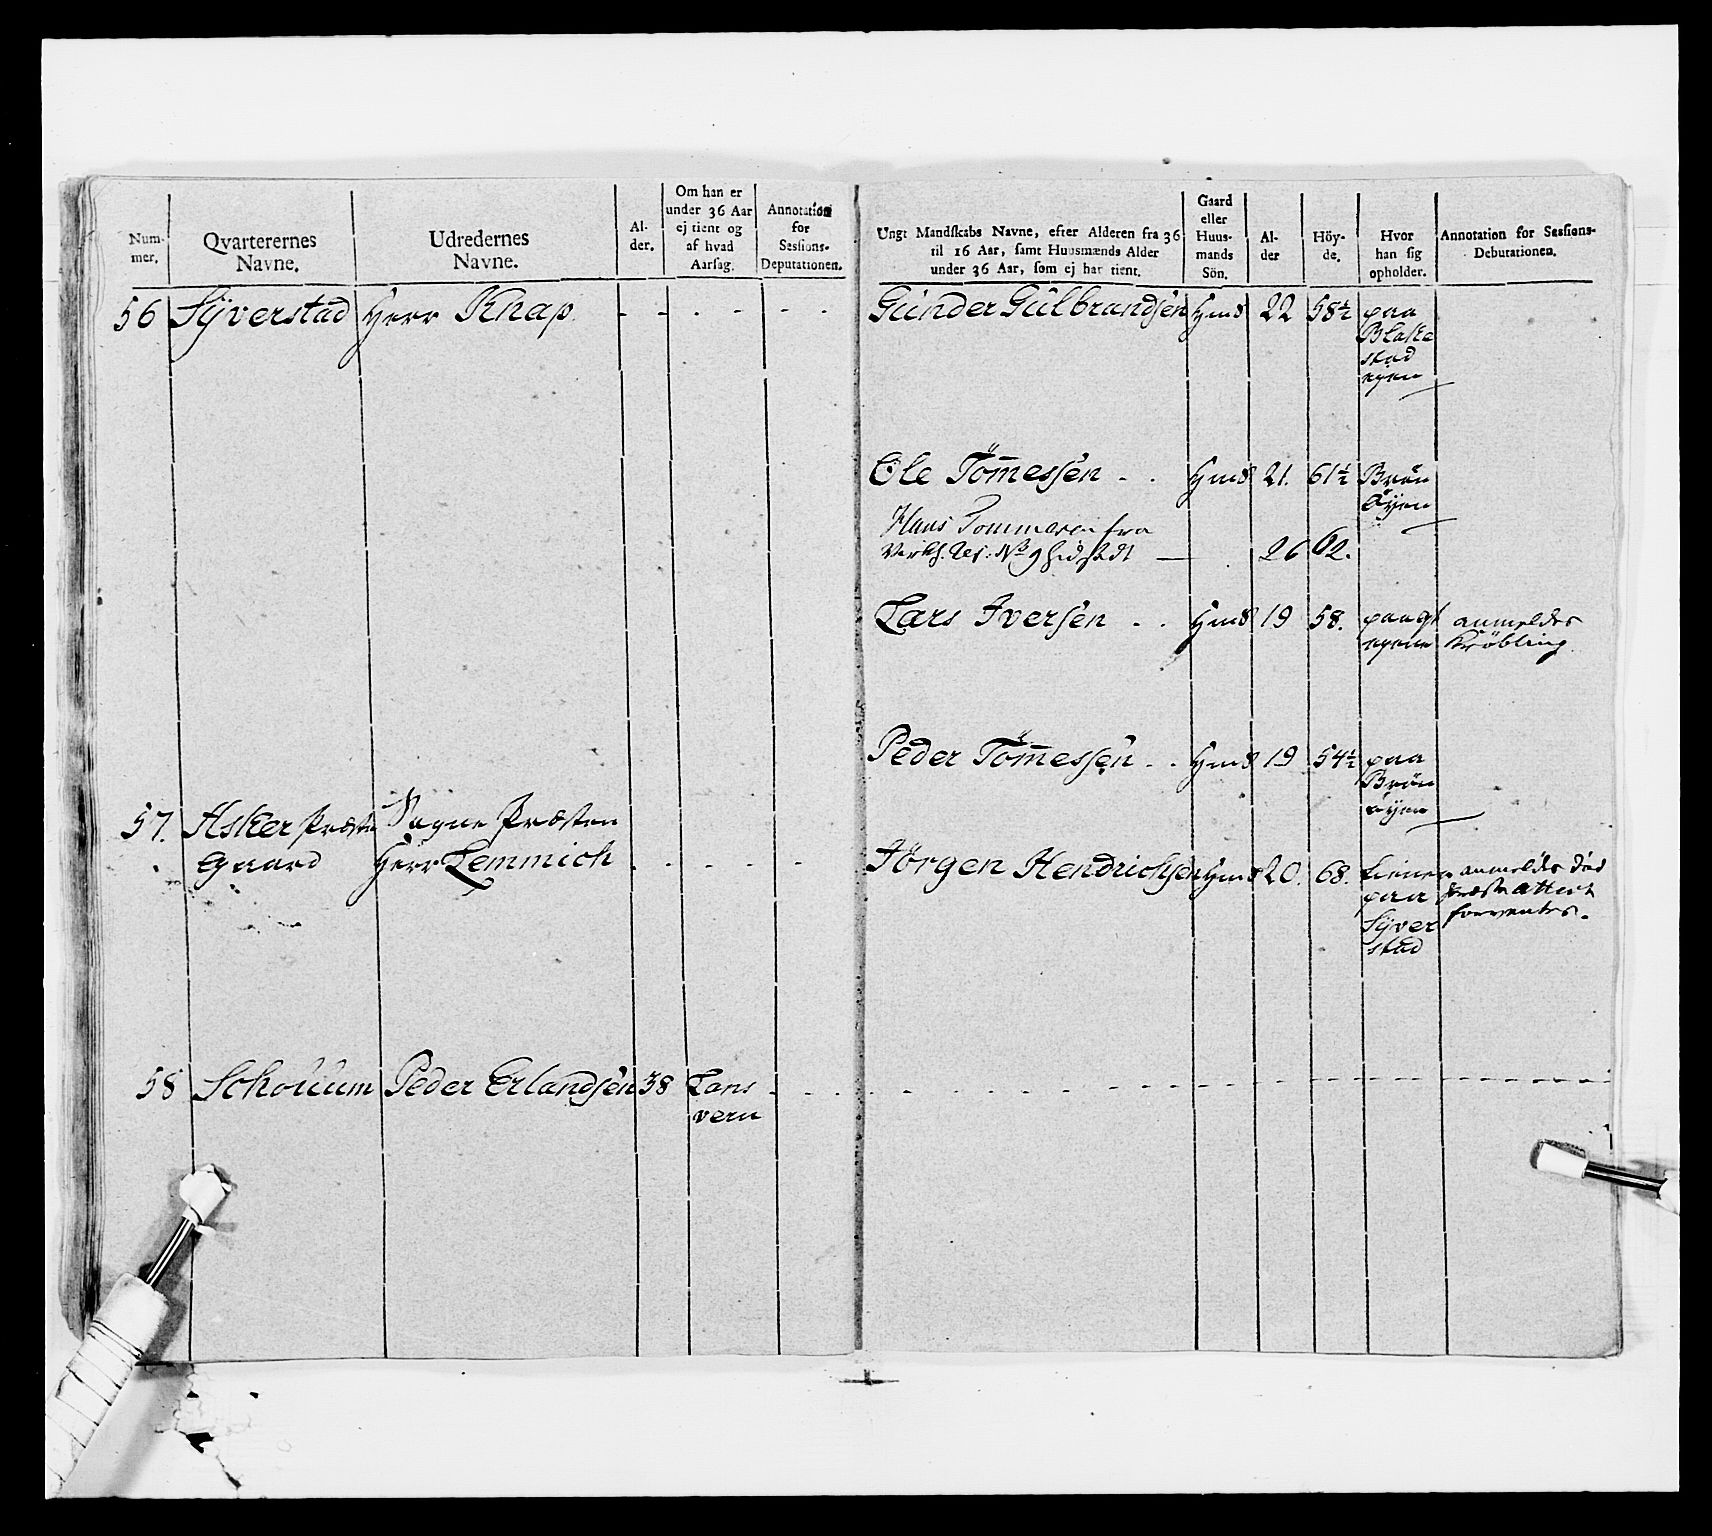 Num-
mer.
Qvarterernes
Navne.
Udredernes
Navne.
Al-
der.
Om han er
under 36 Aar
ej tient og
af hvad
Aarsag.
Annotation
for
Sessions-
Deputationen.
Ungt Mandskabs Navne, efter Alderen fra 36
til 16 Aar, samt Huusmænds Alder
under 36 Aar, som ej har tient.
Gaard
eller
Huus-
mands
Sön.
Al-
der
Höy-
de.
Hvor
han sig
opholder.
Annotation for Sessions-
Debutationen.
56 Syverstad Herr Knap. Gunder Gulbrandsen Hmd 22 58½ paa
Blake
stad
eyen
Ole Tömessen Hmd 21. 61½ Brön
Öyen
Hans Tommesen fra
No 9 26 62.
Lars Iversen Hmd 19 58. anmeldes
Kröbling.
Peder Tömessen Hmd 19 54½ paa
Brön
öyen
57. Asker Præste Sogne Præsten
gaard Herr Lemmich Jörgen Hendrichsen Hmd 20. 68. tiener anmeldes död
paa Præste Attest
Syver forventes.
stad
58 Schouum Peder Erlandsen 38 Lans
vern